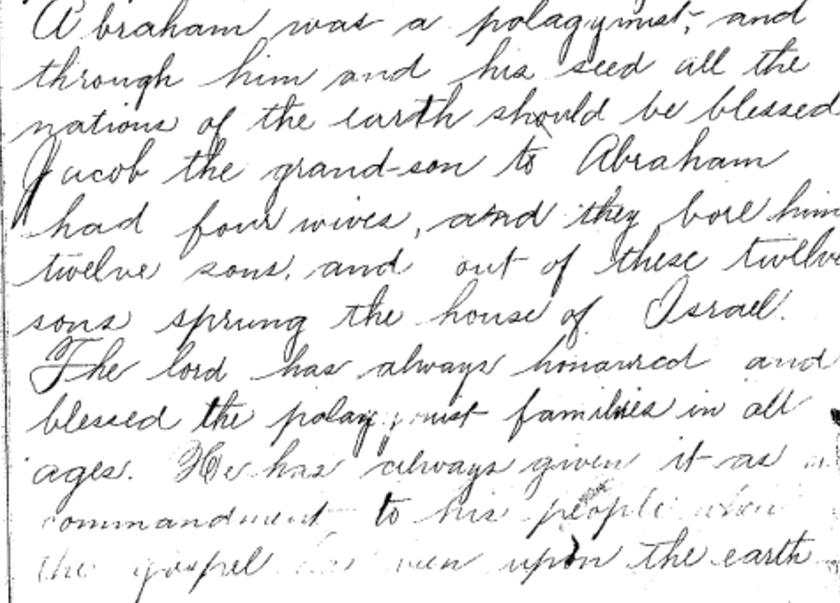 Abraham was a polagymist, and
through him and his seed all the
nations of the earth should be blessed
Jacob the grand-son to Abraham
had four wives, and they bore him
twelve sons, and out of these twelve
sons sprung the house of Israel.
The lord has always honaured and
blessed the polagymist families in all
ages. He has always given it as a
commandment to his people when
the gospel has been upon the earth